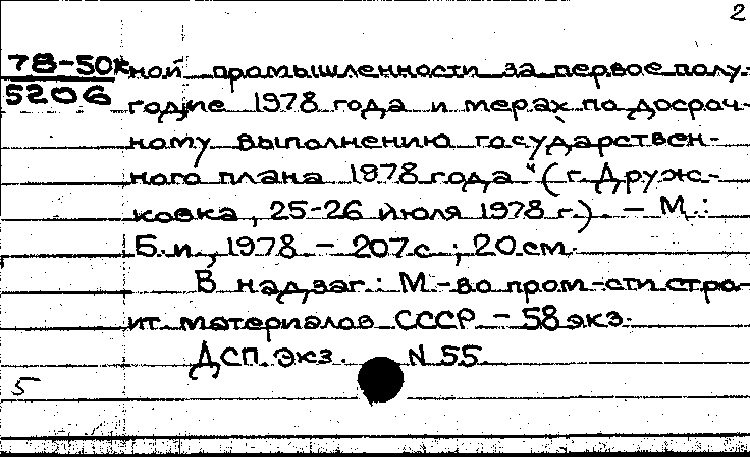 2
78-50к ной промышленности за первое полу-
5206 годие 1978 года и мерах по досроч-
ному выполнению государствен-
ного плана 1978 года" (г. Друж-
ковка, 25-26 июля 1978 г.). – М.:
Б.и., 1978. – 207 с.; 20 см.
В надзаг.: М-во пром-сти стро-
ит. материалов СССР. – 58 экз.
ДСП. Экз. N 55.
5